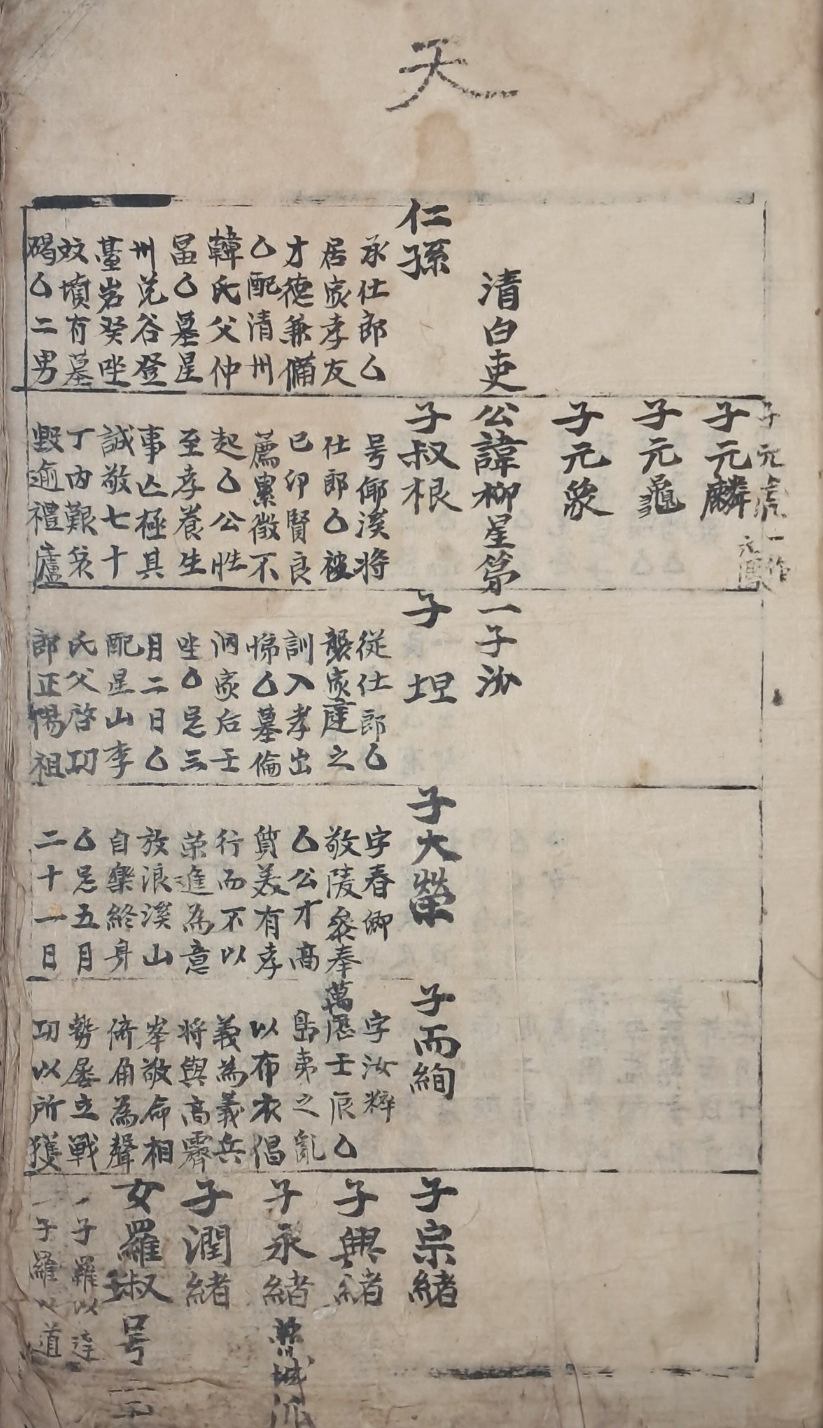 天
子元虎一作
元鳳
子元麟
子元龜
子元象
清白吏公諱柳星第一子汾
仁孫
承仕郎乙
居家孝友
才德兼備
乙配清州
韓氏父仲
乙墓星
州兌谷登
臺岩癸坐
墳有墓
碣乙二男
子叔根
号溪將
仕郎乙被
己卯賢良
薦累徵不
起乙公性
至孝養生
事亡極其
誠敬七十
丁內艱哀
毀逾禮廬
子坦
從仕郎乙
襲家庭之
訓入孝出
悌乙墓倫
洞家后壬
坐乙忌三
月二日乙
配星山李
氏父啓功
郎正惕祖
子大榮
字春卿
敬陵叅奉
乙公才高
質美有孝
行而不以
荣進為意
放浪溪山
自樂終身
乙忌五月
二十一日
子而絢
字汝粹
萬歷壬辰乙
島夷之亂
以布衣倡
義為義兵
將與高霽
峯敬命相
倚角為聲
勢屡立戦
功以所獲
子宗緒
子興緒
子永緒
子潤緒
女羅淑号
子羅以達
子羅以道